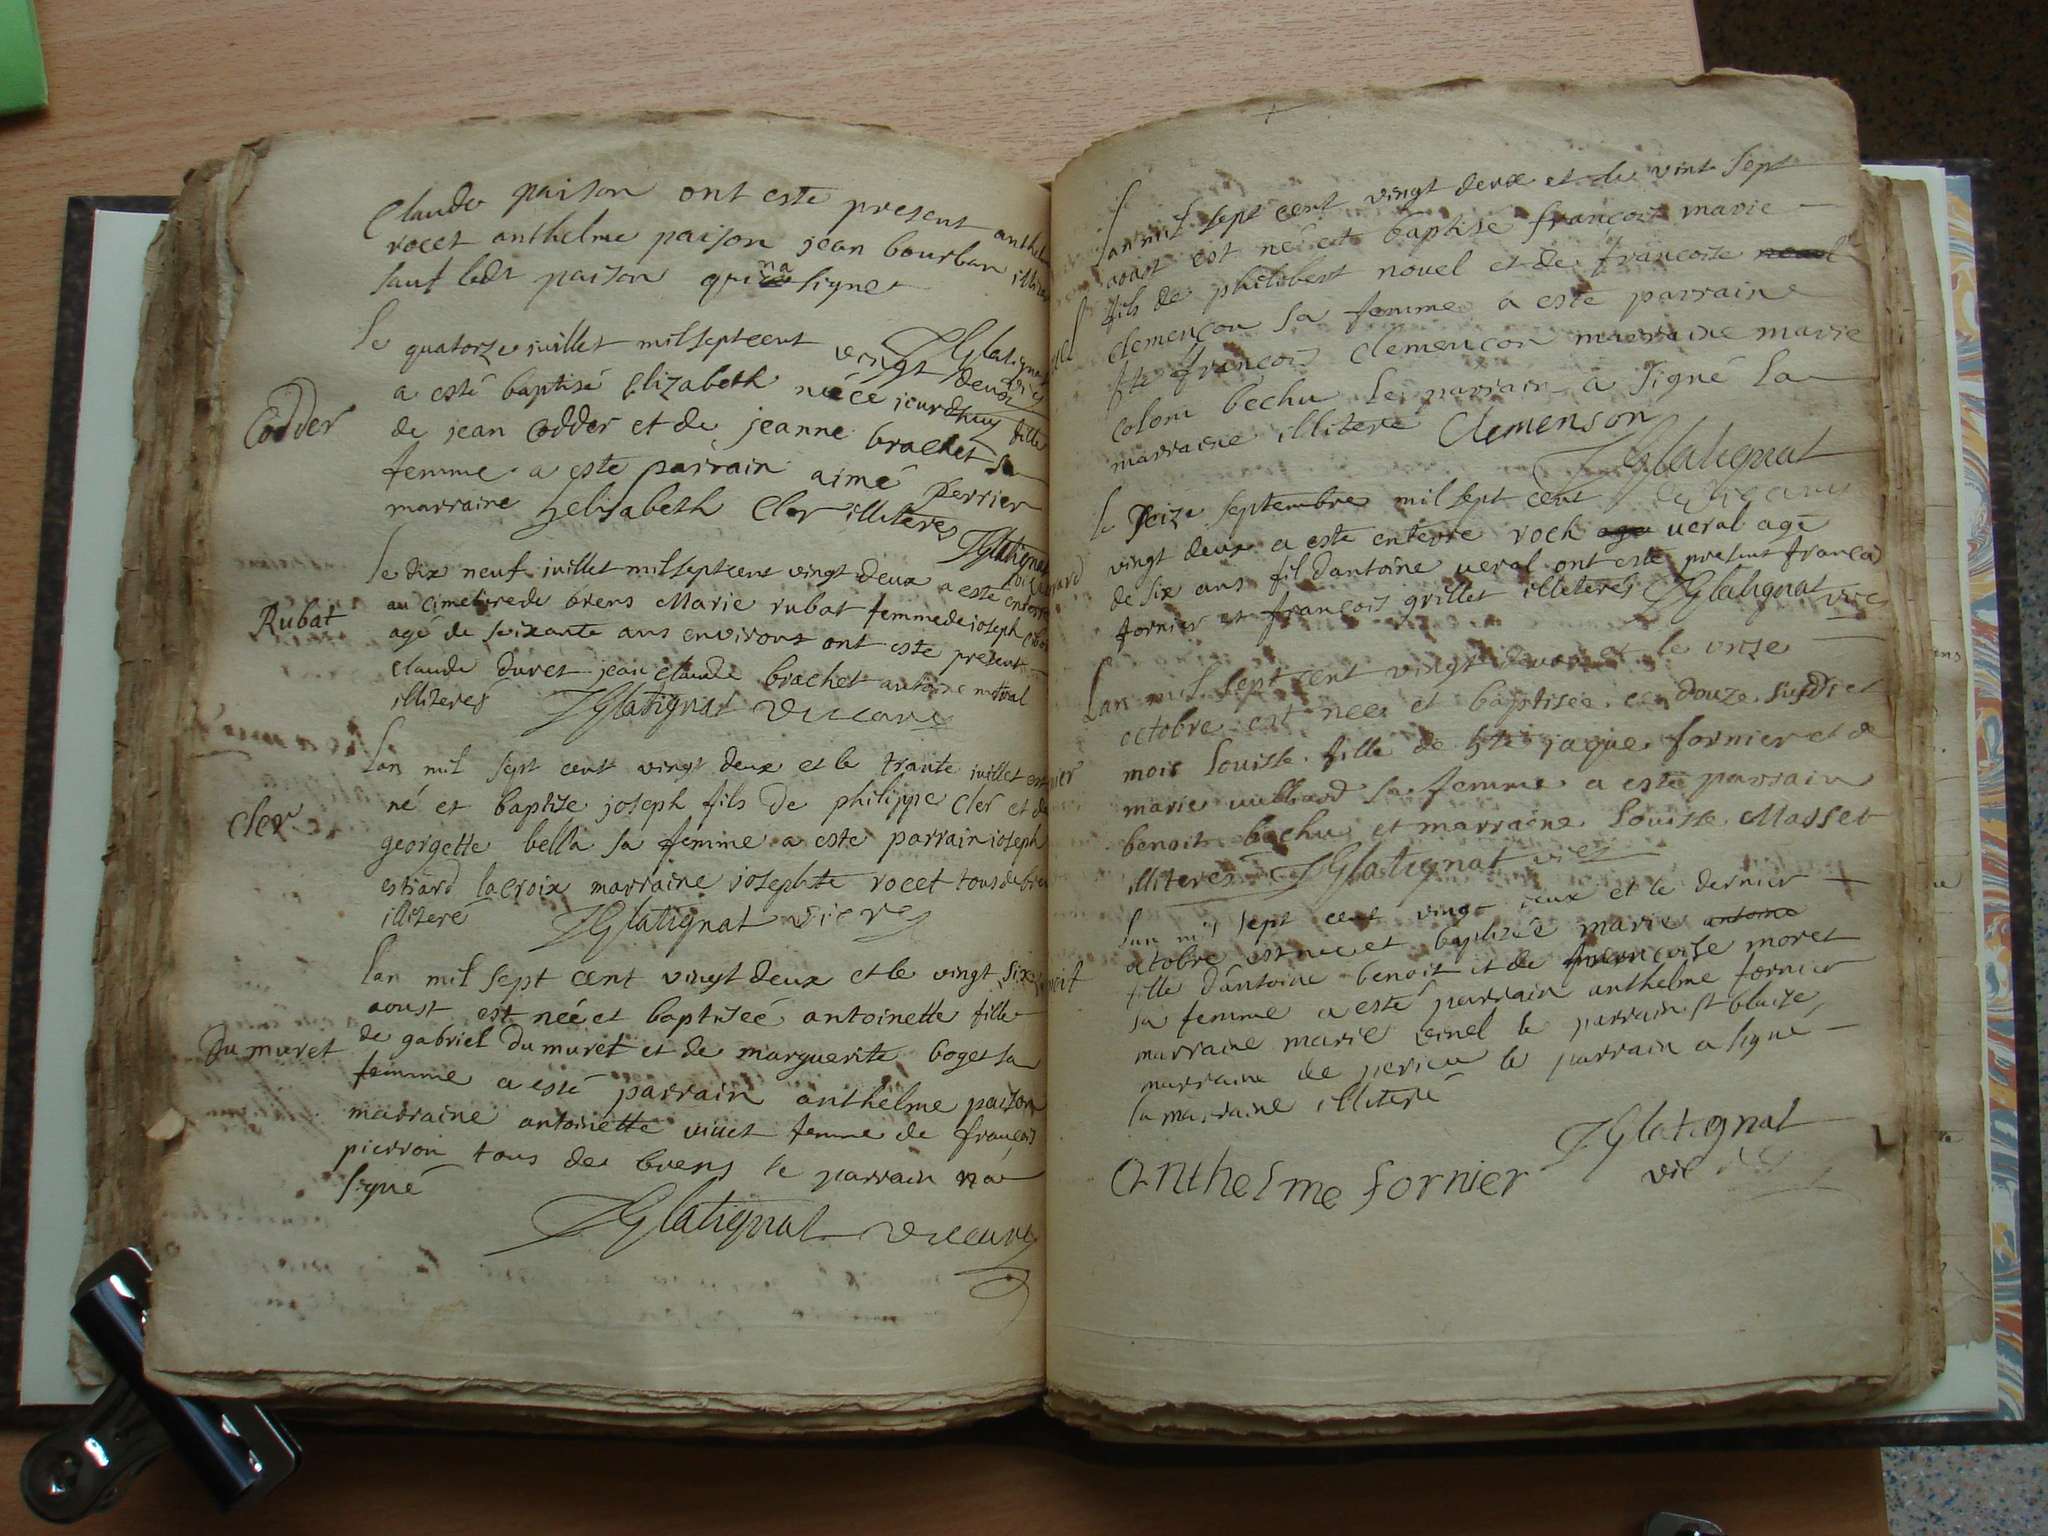 Claude paison ont este present anthel
rocet anthelme paison jean bourban
sauf ledt paison qui na signe
JGlatignat
Le quatorze juillet mil sept cent vingt deux
a esté baptisé Elizabeth néé ce jourdhuy fille
Codder
de jean Codder et de jeanne brachet sa
femme a este parrain aimé perrier
marraine helisabeth Cler illiteres JGlatignat
Le dix neuf juillet mil sept cent vingt deux a esté enterré
Rubat
au cimetire de brens Marie rubat femme de joseph
agé de soixante ans environt ont este present
claude duret jean claude brachet antoine mitral
illiteres JGlatignat viccaire
Lan mil sept cent vingt deux et le trante juillet est
né et baptize joseph fils de philippe Cler et de
Cler
georgette bella sa femme a este parrain joseph
estiard lacroix marraine josephte rocet tous de bre
illiteré JGlatignat vicre
lan mil sept cent vingt deux et le vingt six
aoust est néé et baptiséé antoinette fille
Du muret
de gabriel Du muret et de marguerite boget sa
femme a esté parrain anthelme paison
marraine antoinette viuet femme de françois
pierron tous de brens le parrain na
signé
JGlatignat viccaire
Lan mil sept cent vingt deux et le vint sept
aoust est né et baptisé françois marie
fils de philibert nouel et de francoise
clemençon sa femme a este parrain
hte françois Clemençon marraine marie
colom béchu le parrain a signé la
marraine illiteré Clemenson
JGlatignat
le seize septembre mil sept cent
vingt deux a este enterre roch ueral agé
de six ans fil dantoine ueral ont esté present françois
fornier et françois grillet illiteres JGlatignat vic
Lan mil sept cent vingt deux et le onze
octobre est nee et baptisée ce douze susdt et
mois Louisse fille de hte jaque fornier et de
marie sa femme a esté parrain
benoit bechu et marraine Louisse Masset
illiteres JGlatignat vic
Lan mil sept cent vingt deux et le dernier
octobre est nee et baptisée marie antoine
benoit
fille dantoine benoit et de francoise moret
sa femme a esté parrain anthelme fornier
marraine marie le parrain st blaize
marraine de perieu le parrain a signé
la marraine illiteré
JGlatignat
anthelme fornier
vic